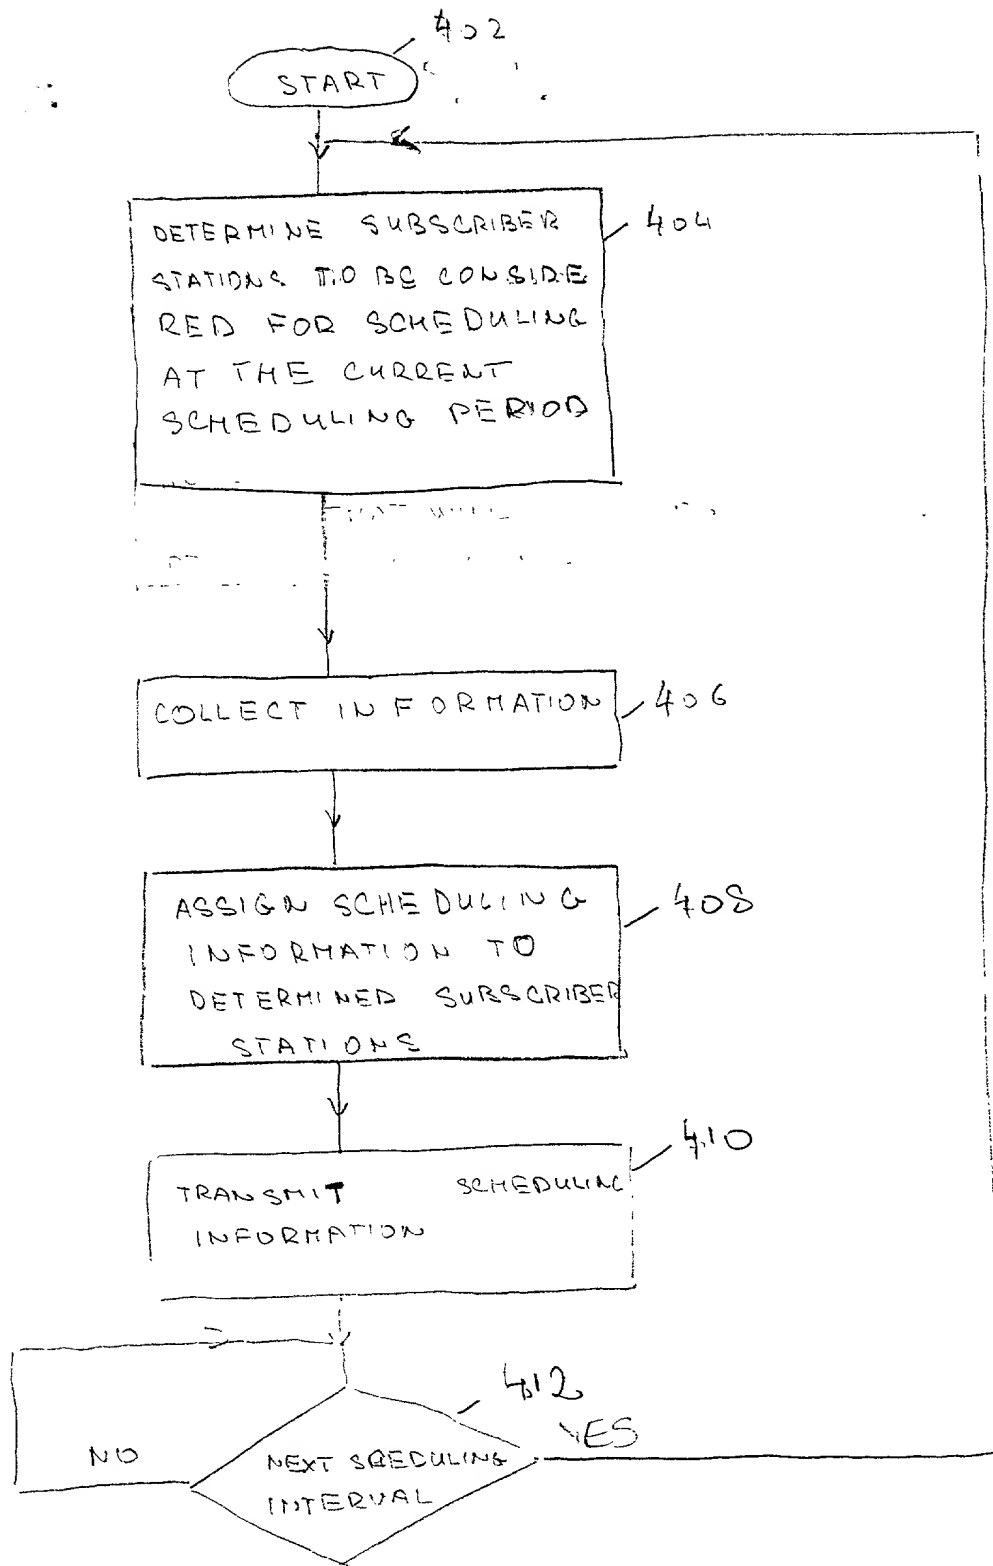 402
START
DETERMINE SUBSCRIBER
STATIONS TO BE CONSIDE
RED FOR SCHEDULING
AT THE CURRENT
SCHEDULING PERIOD
404
COLLECT INFORMATION
406
ASSIGN SCHEDULING
INFORMATION TO
DETERMINED SUBSCRIBER
STATIONS
408
410
TRANSMIT SCHEDULING
INFORMATION
412
YES
NO
NEXT SHEDULING
INTERVAL